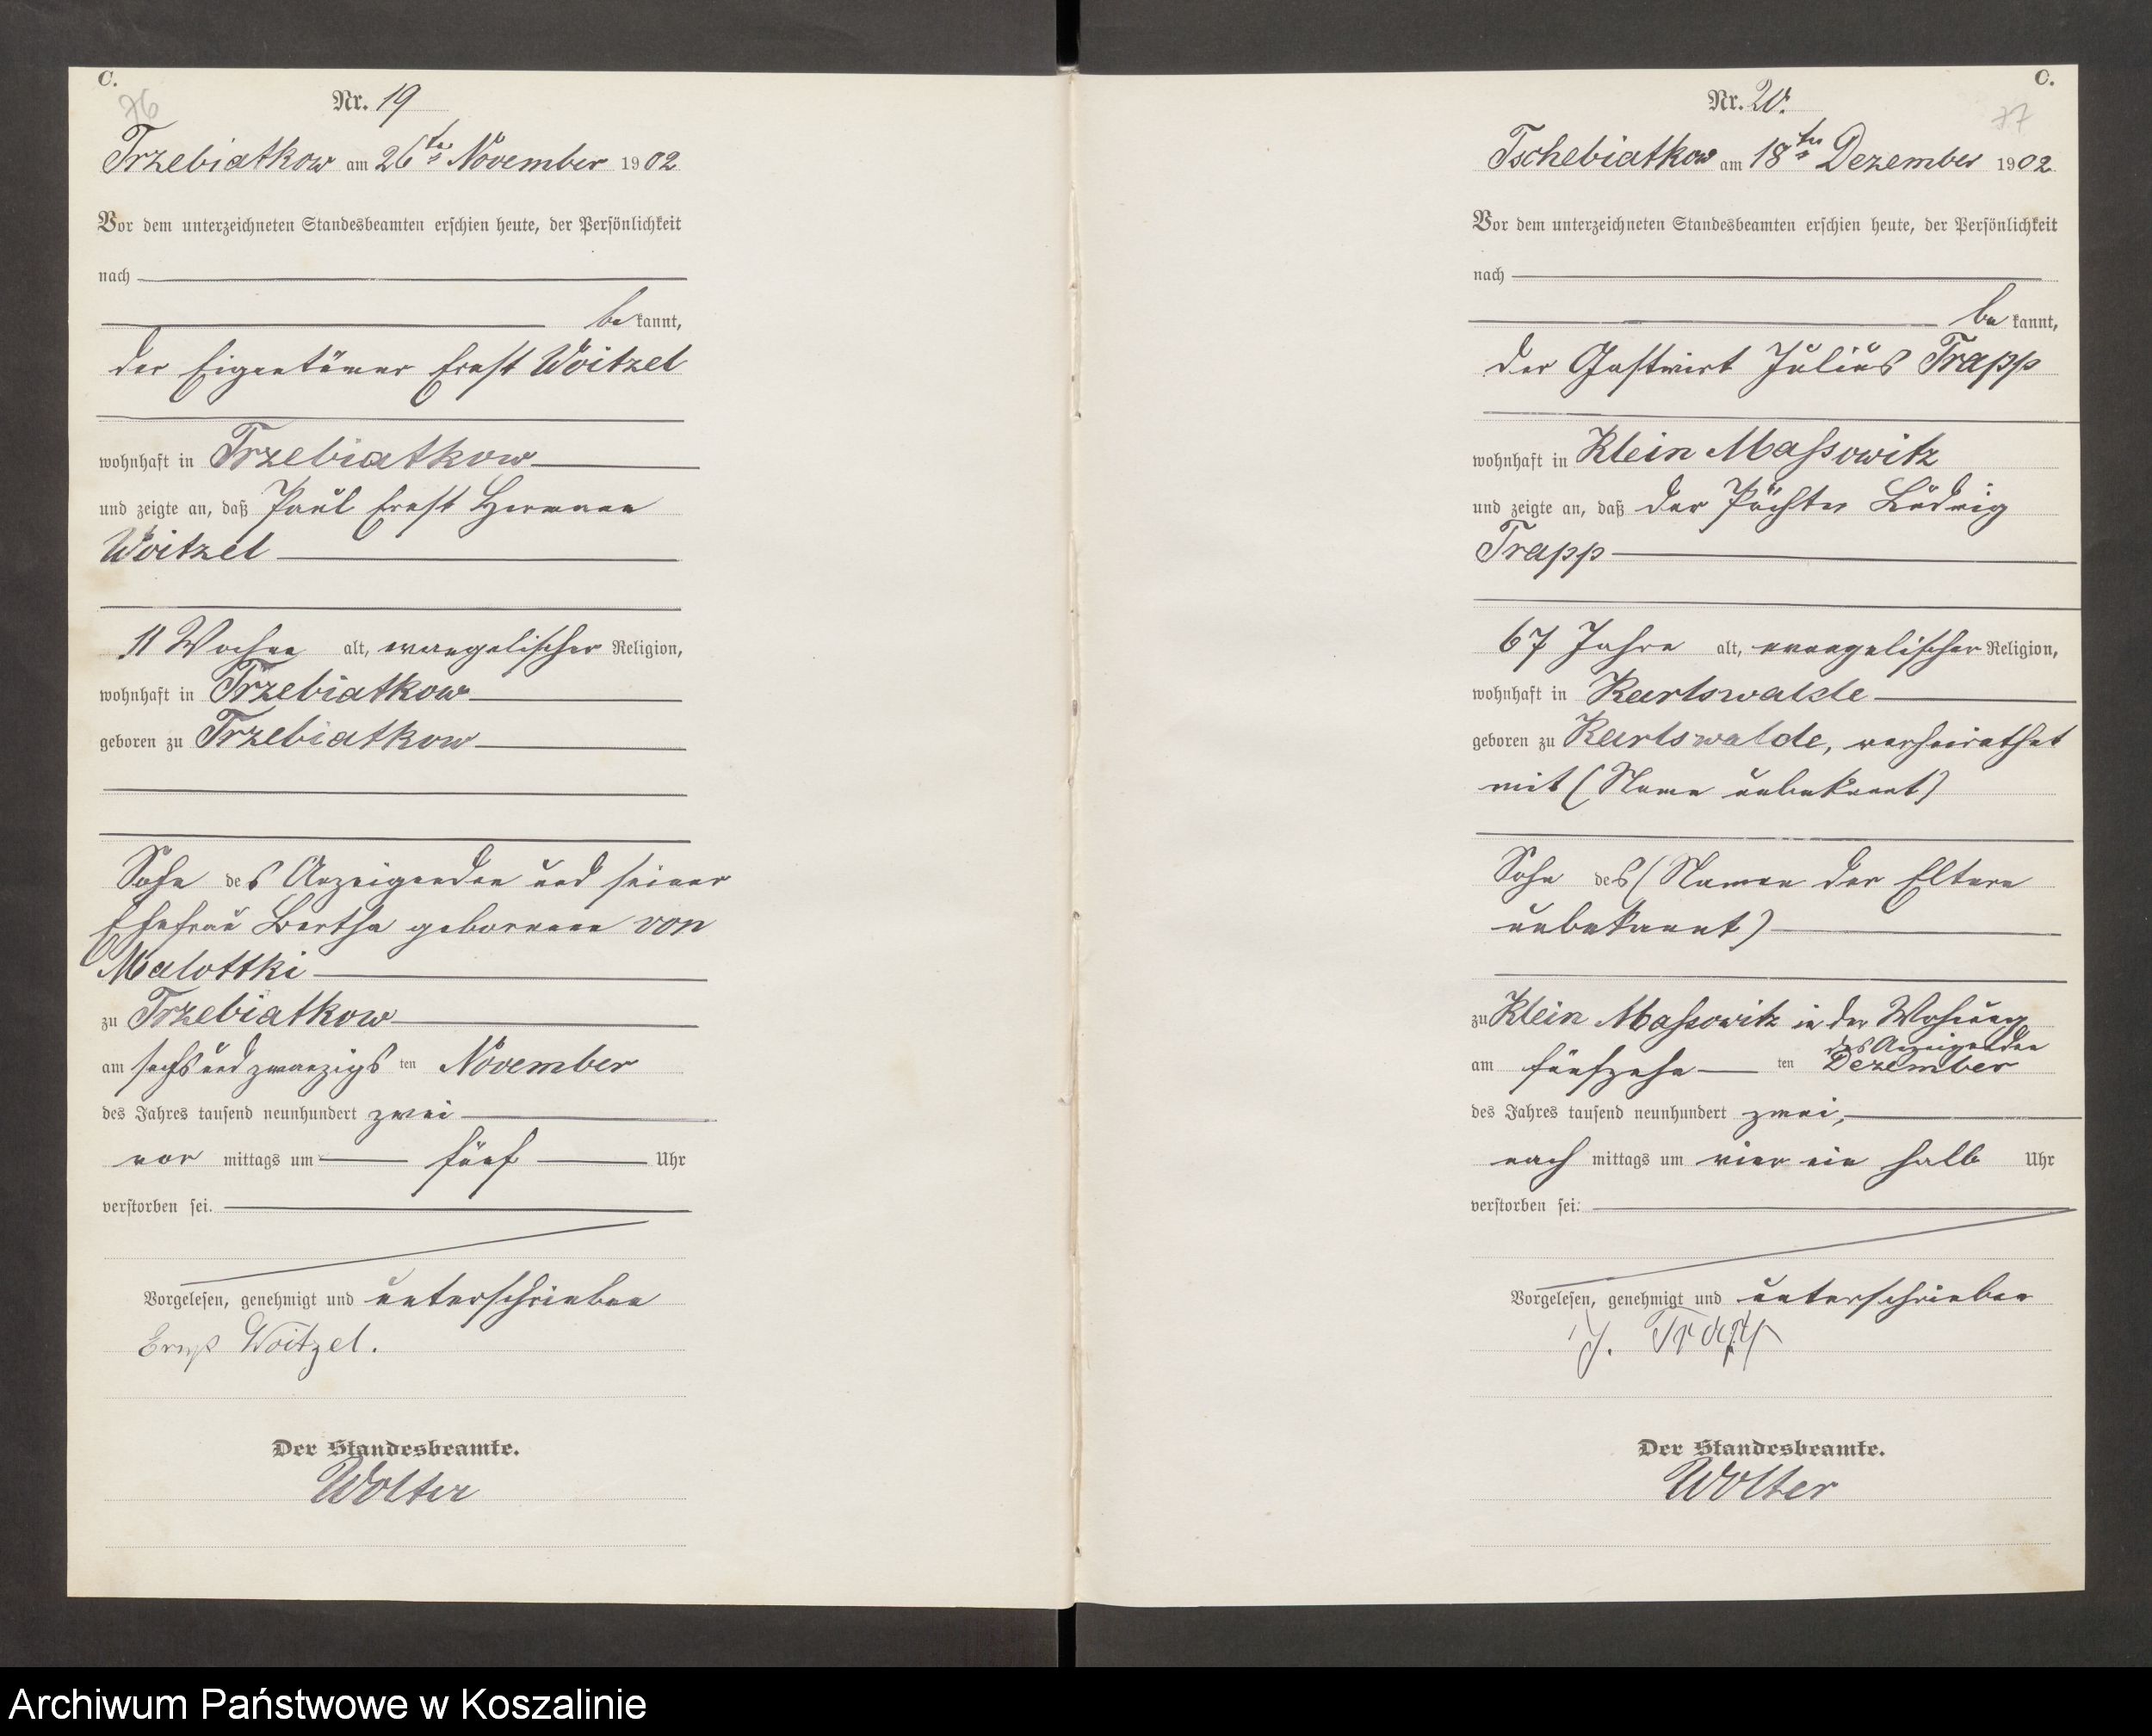 C.
76
Nr. 19
Trzebiatkow am 26ten November 1902
Vor dem unterzeichneten Standesbeamten erschien heute, der Persönlichkeit
nach
be kannt,
der Eigentümer Ernst Woitzel
wohnhaft in Trzebiatkow
und zeigte an, daß Paul Ernst Hermann
Woitzel
11 Wochen alt, evangelischer Religion,
wohnhaft in Trzebiatkow
geboren zu Trzebiatkow
Sohn des Anzeigenden und seiner
Ehefrau Bertha geborenen von
Malottki
zu Trzebiatkow
am sechsundzwanzigs ten November
des Jahres tausend neunhundert zwei
vor mittags um fünf Uhr
verstorben sei.
Vorgelesen, genehmigt und unterschrieben
Ernst Woitzel.
Der Standesbeamte.
Wolter
C.
77
Nr. 20.
Tschebiatkow am 18ten Dezember 1902
Vor dem unterzeichneten Standesbeamten erschien heute, der Persönlichkeit
nach
be kannt,
der Gastwirt Julius Trapp
wohnhaft in Klein Massowitz
und zeigte an, daß der Pächter Ludwig
Trapp
67 Jahre alt, evangelischer Religion,
wohnhaft in Karlswalde
geboren zu Karlswalde, verheirathet
mit (Name unbekannt)
Sohn des (Namen der Eltern
unbekannt)
zu Klein Massowitz in der Wohnung
des Anzeigenden
am fünfzehn ten Dezember
des Jahres tausend neunhundert zwei,
nach mittags um vier ein halb Uhr
verstorben sei.
Vorgelesen, genehmigt und unterschrieben
J. Trapp
Der Standesbeamte.
Wolter
Archiwum Państwowe w Koszalinie